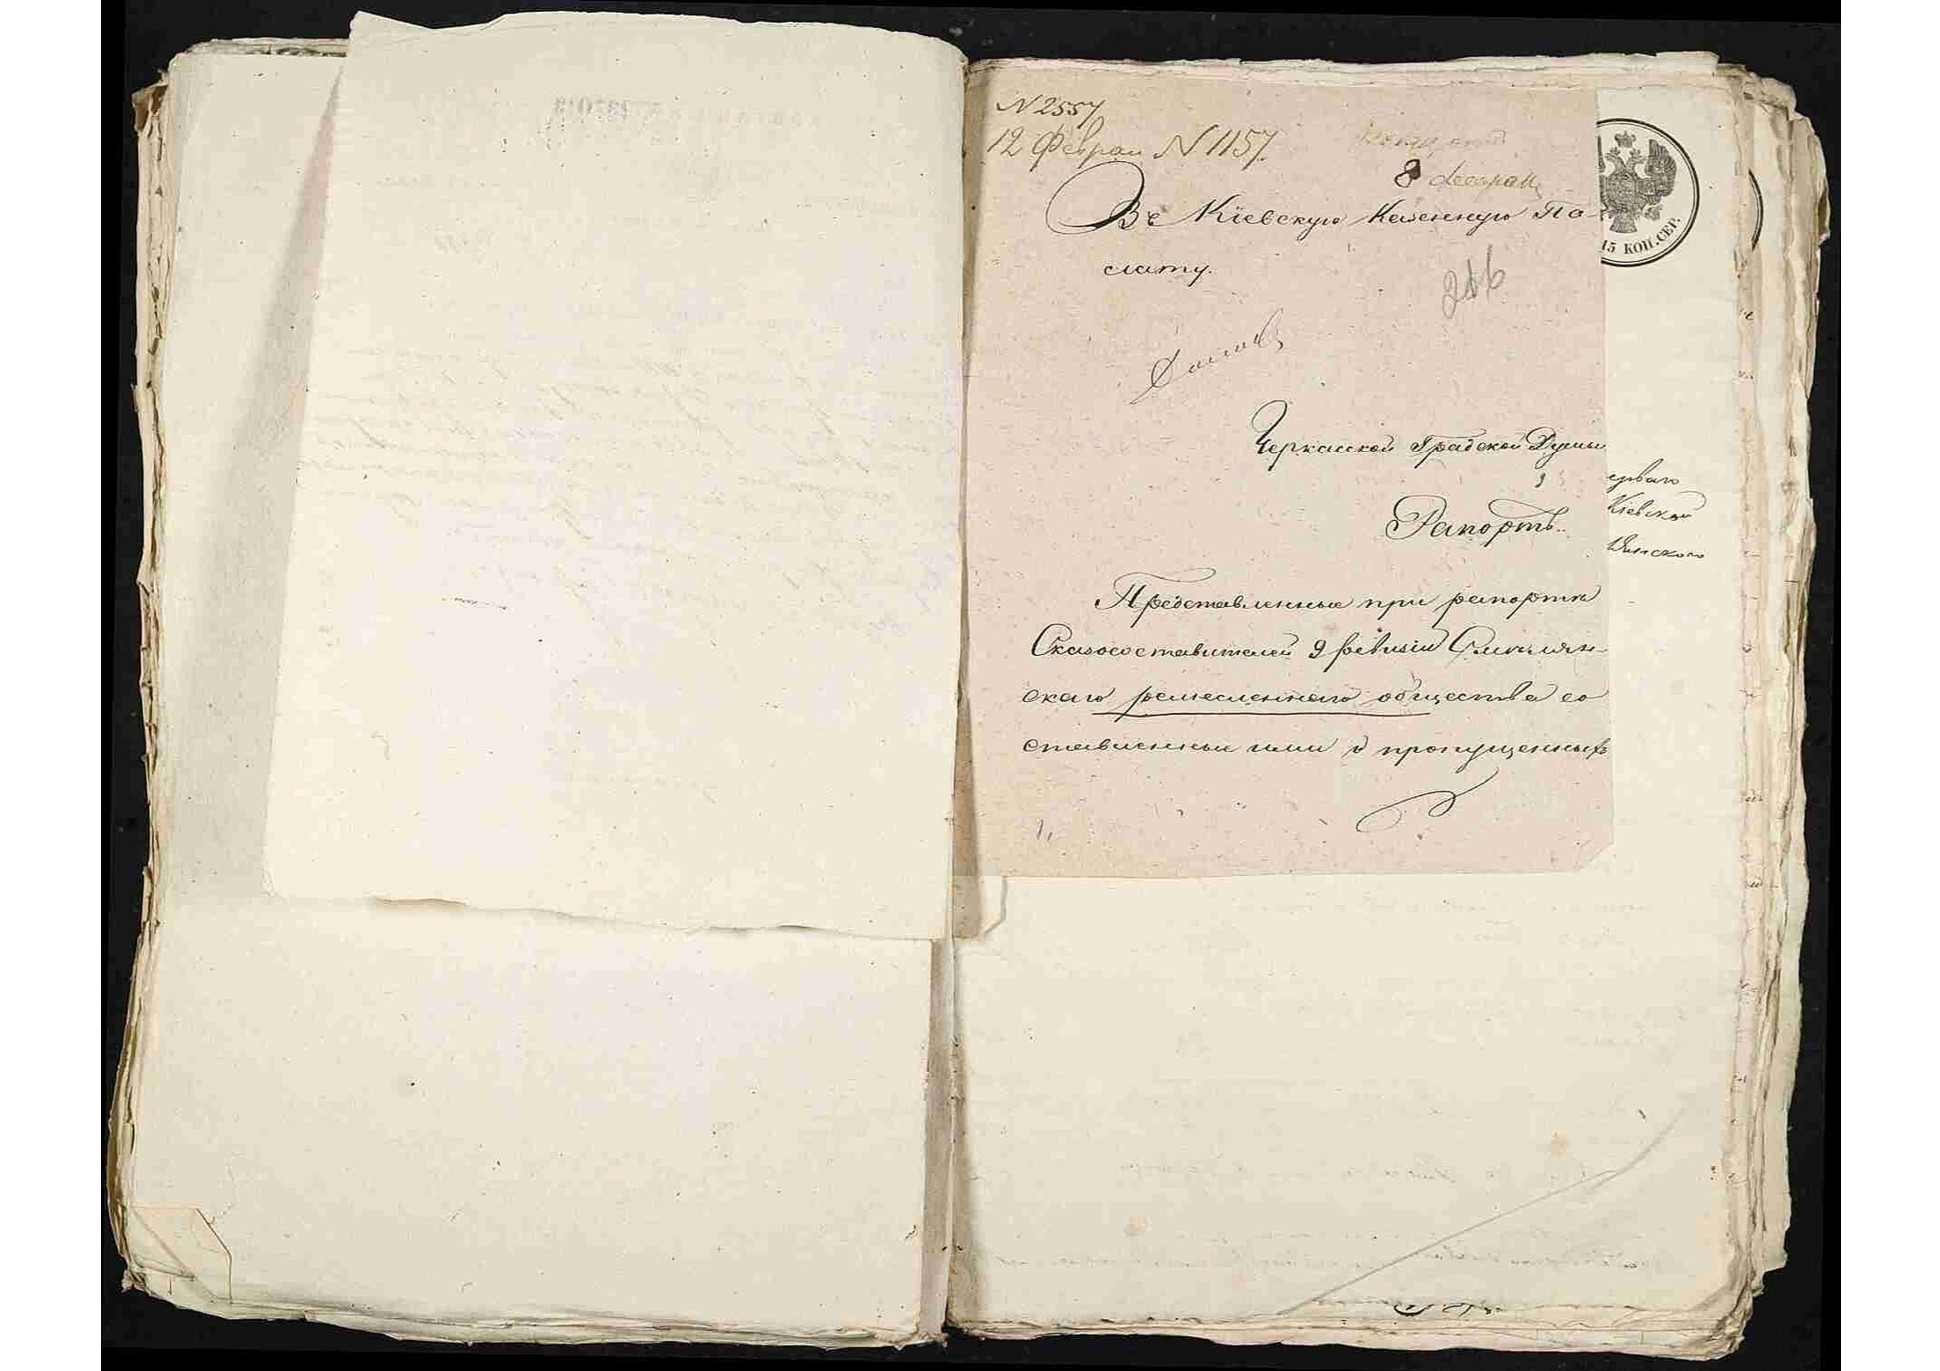 N 2557
12 Феврал N 1157.
8 Феврал
Въ Кіевскую Казенную Па-
лату.
216
Черкасской Градской Думы
Рапортъ.
Представленные при рапортѣ
Сказкосоставителей 9 ревизіи Смѣлян-
скаго ремесленнаго общества со
ставленные ими о пропущенныхъ
15 КОП. СЕР.
Кіевской